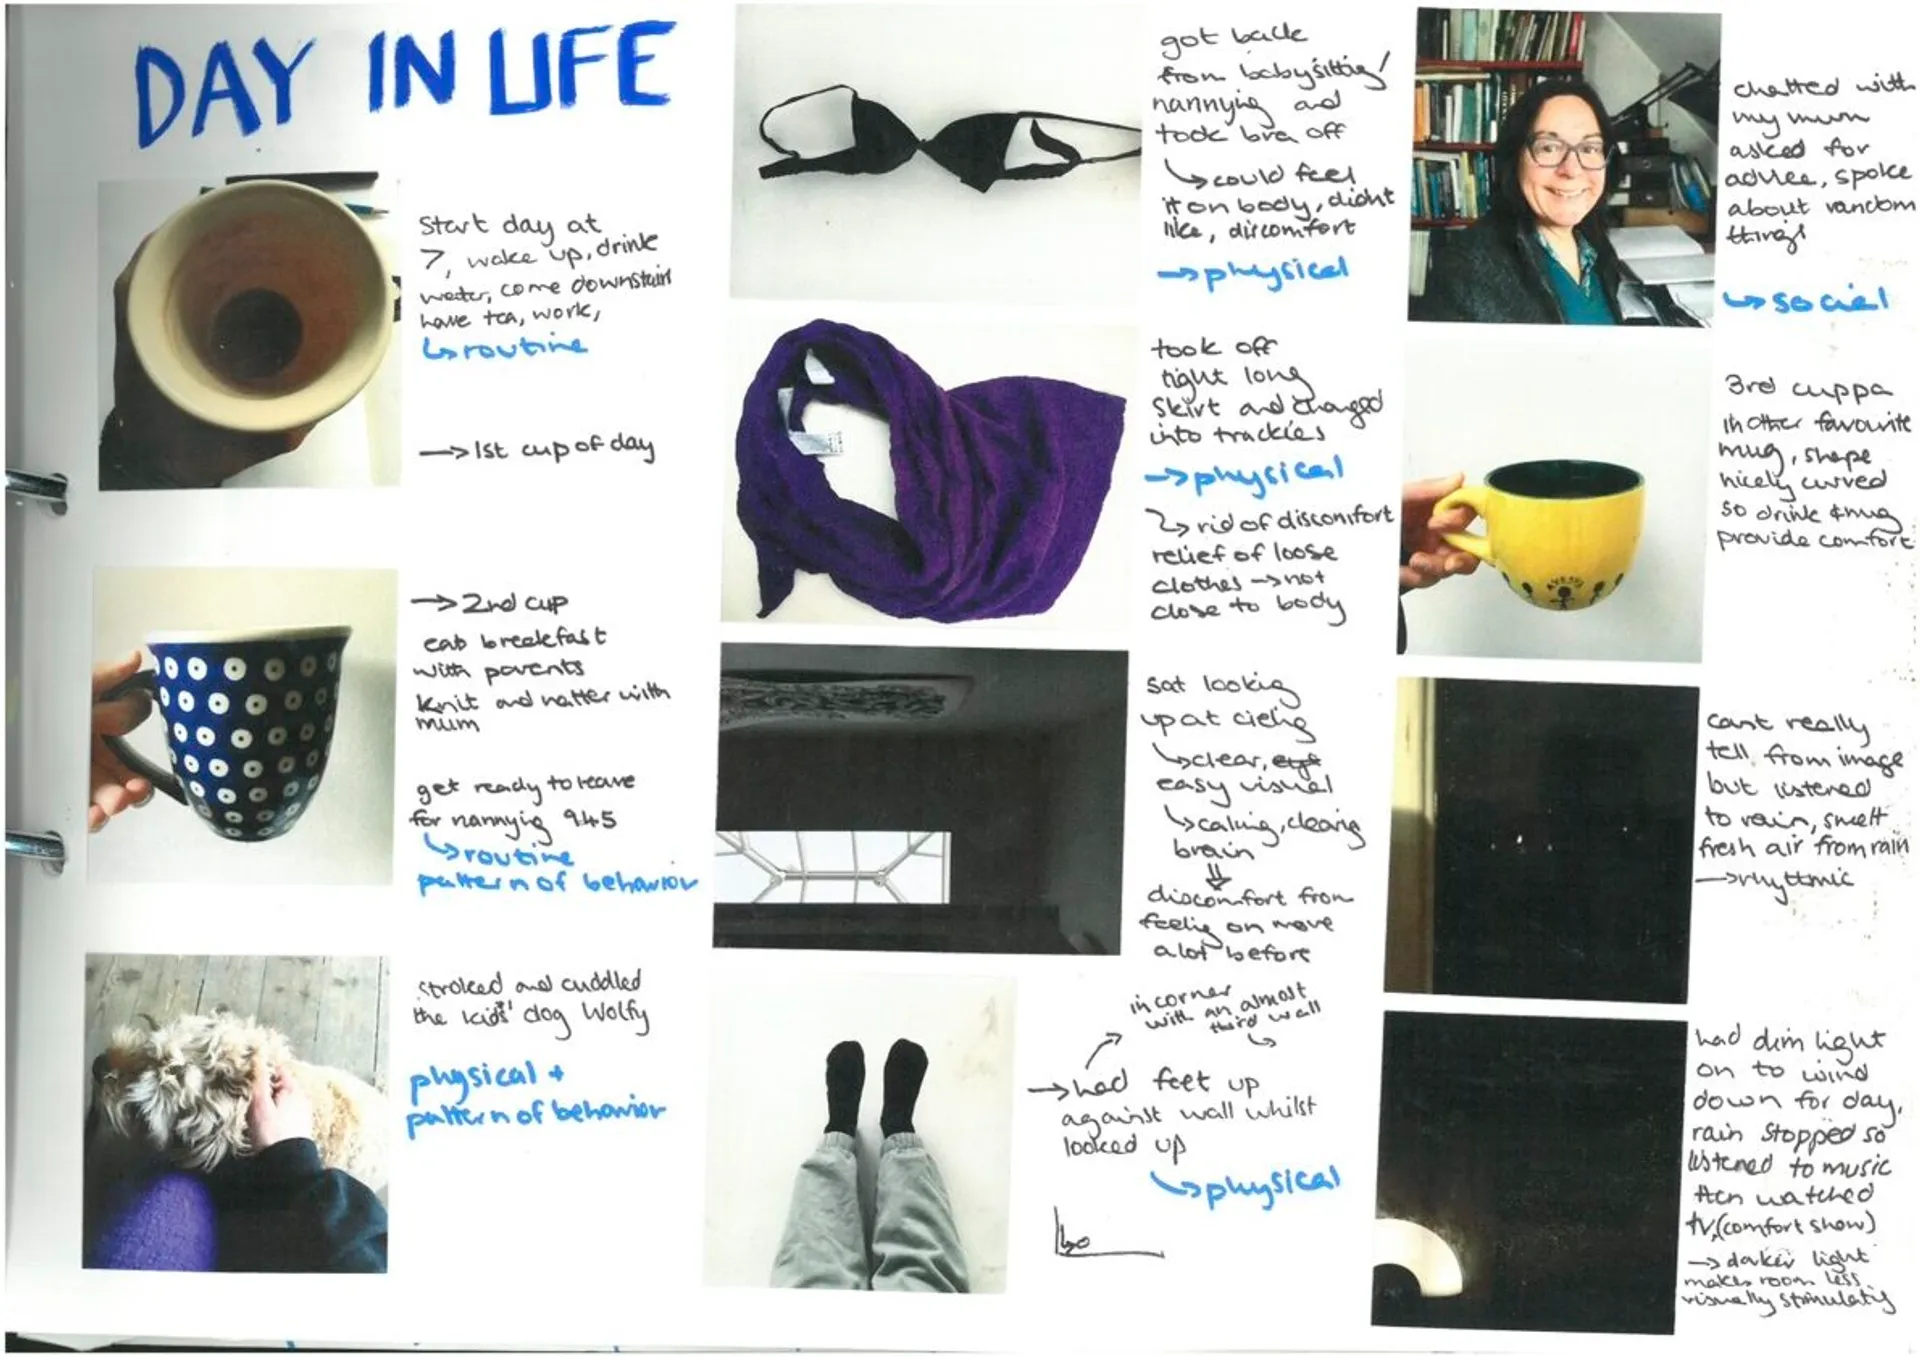 DAY IN LIFE
Start day at
7, wake up, drink
water, come downstairs
have tea, work,
↳ routine
→ 1st cup of day
→ 2nd cup
eat breakfast
with parents
knit and natter with
mum
get ready to leave
for nannying 9.45
↳ routine
pattern of behavior
stroked and cuddled
the kids' dog Wolfy
physical +
pattern of behavior
got back
from babysitting/
nannying and
took bra off
↳ could feel
it on body, didnt
like, discomfort
→ physical
took off
tight long
skirt and changed
into trackies
→ physical
↳ rid of discomfort
relief of loose
clothes → not
close to body
sat looking
up at cieling
↳ clear,
easy visual
↳ calming, clearing
brain
⇓
discomfort from
feeling on move
a lot before
in corner
with an almost
third wall
→ had feet up
against wall whilst
looked up
↳ physical
chatted with
my mum
asked for
advice, spoke
about random
things
↳ social
3rd cuppa
in other favourite
mug, shape
nicely curved
so drink & mug
provide comfort
cant really
tell from image
but listened
to rain, smelt
fresh air from rain
→ rhythmic
had dim light
on to wind
down for day,
rain stopped so
listened to music
then watched
tv, (comfort show)
→ darker light
makes room less
visually stimulating